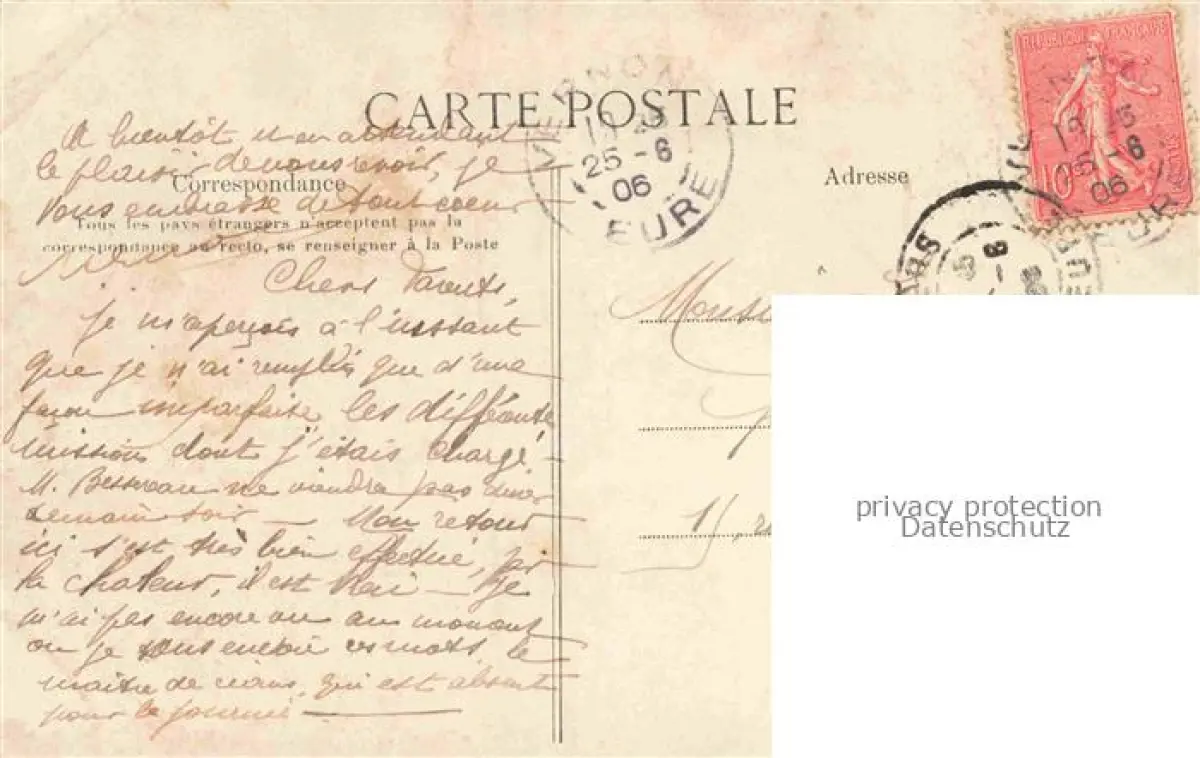 CARTE POSTALE
Correspondance
Tous les pays étrangers n'acceptent pas la
correspondance au recto, se renseigner à la Poste
Adresse
Chers Parents,
je m'aperçois à l'instant
que je n'ai remplis que d'une
façon imparfaite les différente
missions dont j'étais chargé
M. Bessereau ne viendra pas diner
demain soir — Mon retour
ici s'est très bien effectué, par
la chaleur, il est vrai — Je
n'ai pas encore vu au moment
ou je vous envoie ces mots, le
maître de céans, qui est absent
pour la journée
A bientôt et en attendant
le plaisir de vous revoir, je
vous embrasse de tout coeur
RÉPUBLIQUE FRANÇAISE
10
POSTES
VERNON
19
25 -6
06
EURE
19
25 -6
06
EURE
Monsi
15, ru
privacy protection
Datenschutz